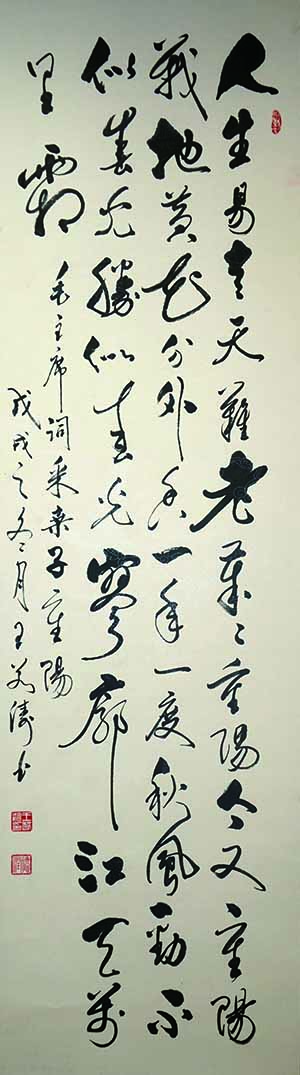 人生易老天難老歲〻重陽今又重陽
戰地黃花分外香一年一度秋風勁不
似春光勝似春光寥廓江天萬
里霜
毛主席詞采桑子重陽
戊戌之冬月王濤书